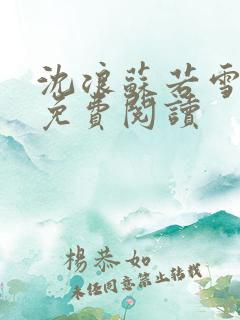 沈浪蘇若雪
免費閱讀
楊恭如
未經同意禁止轉載